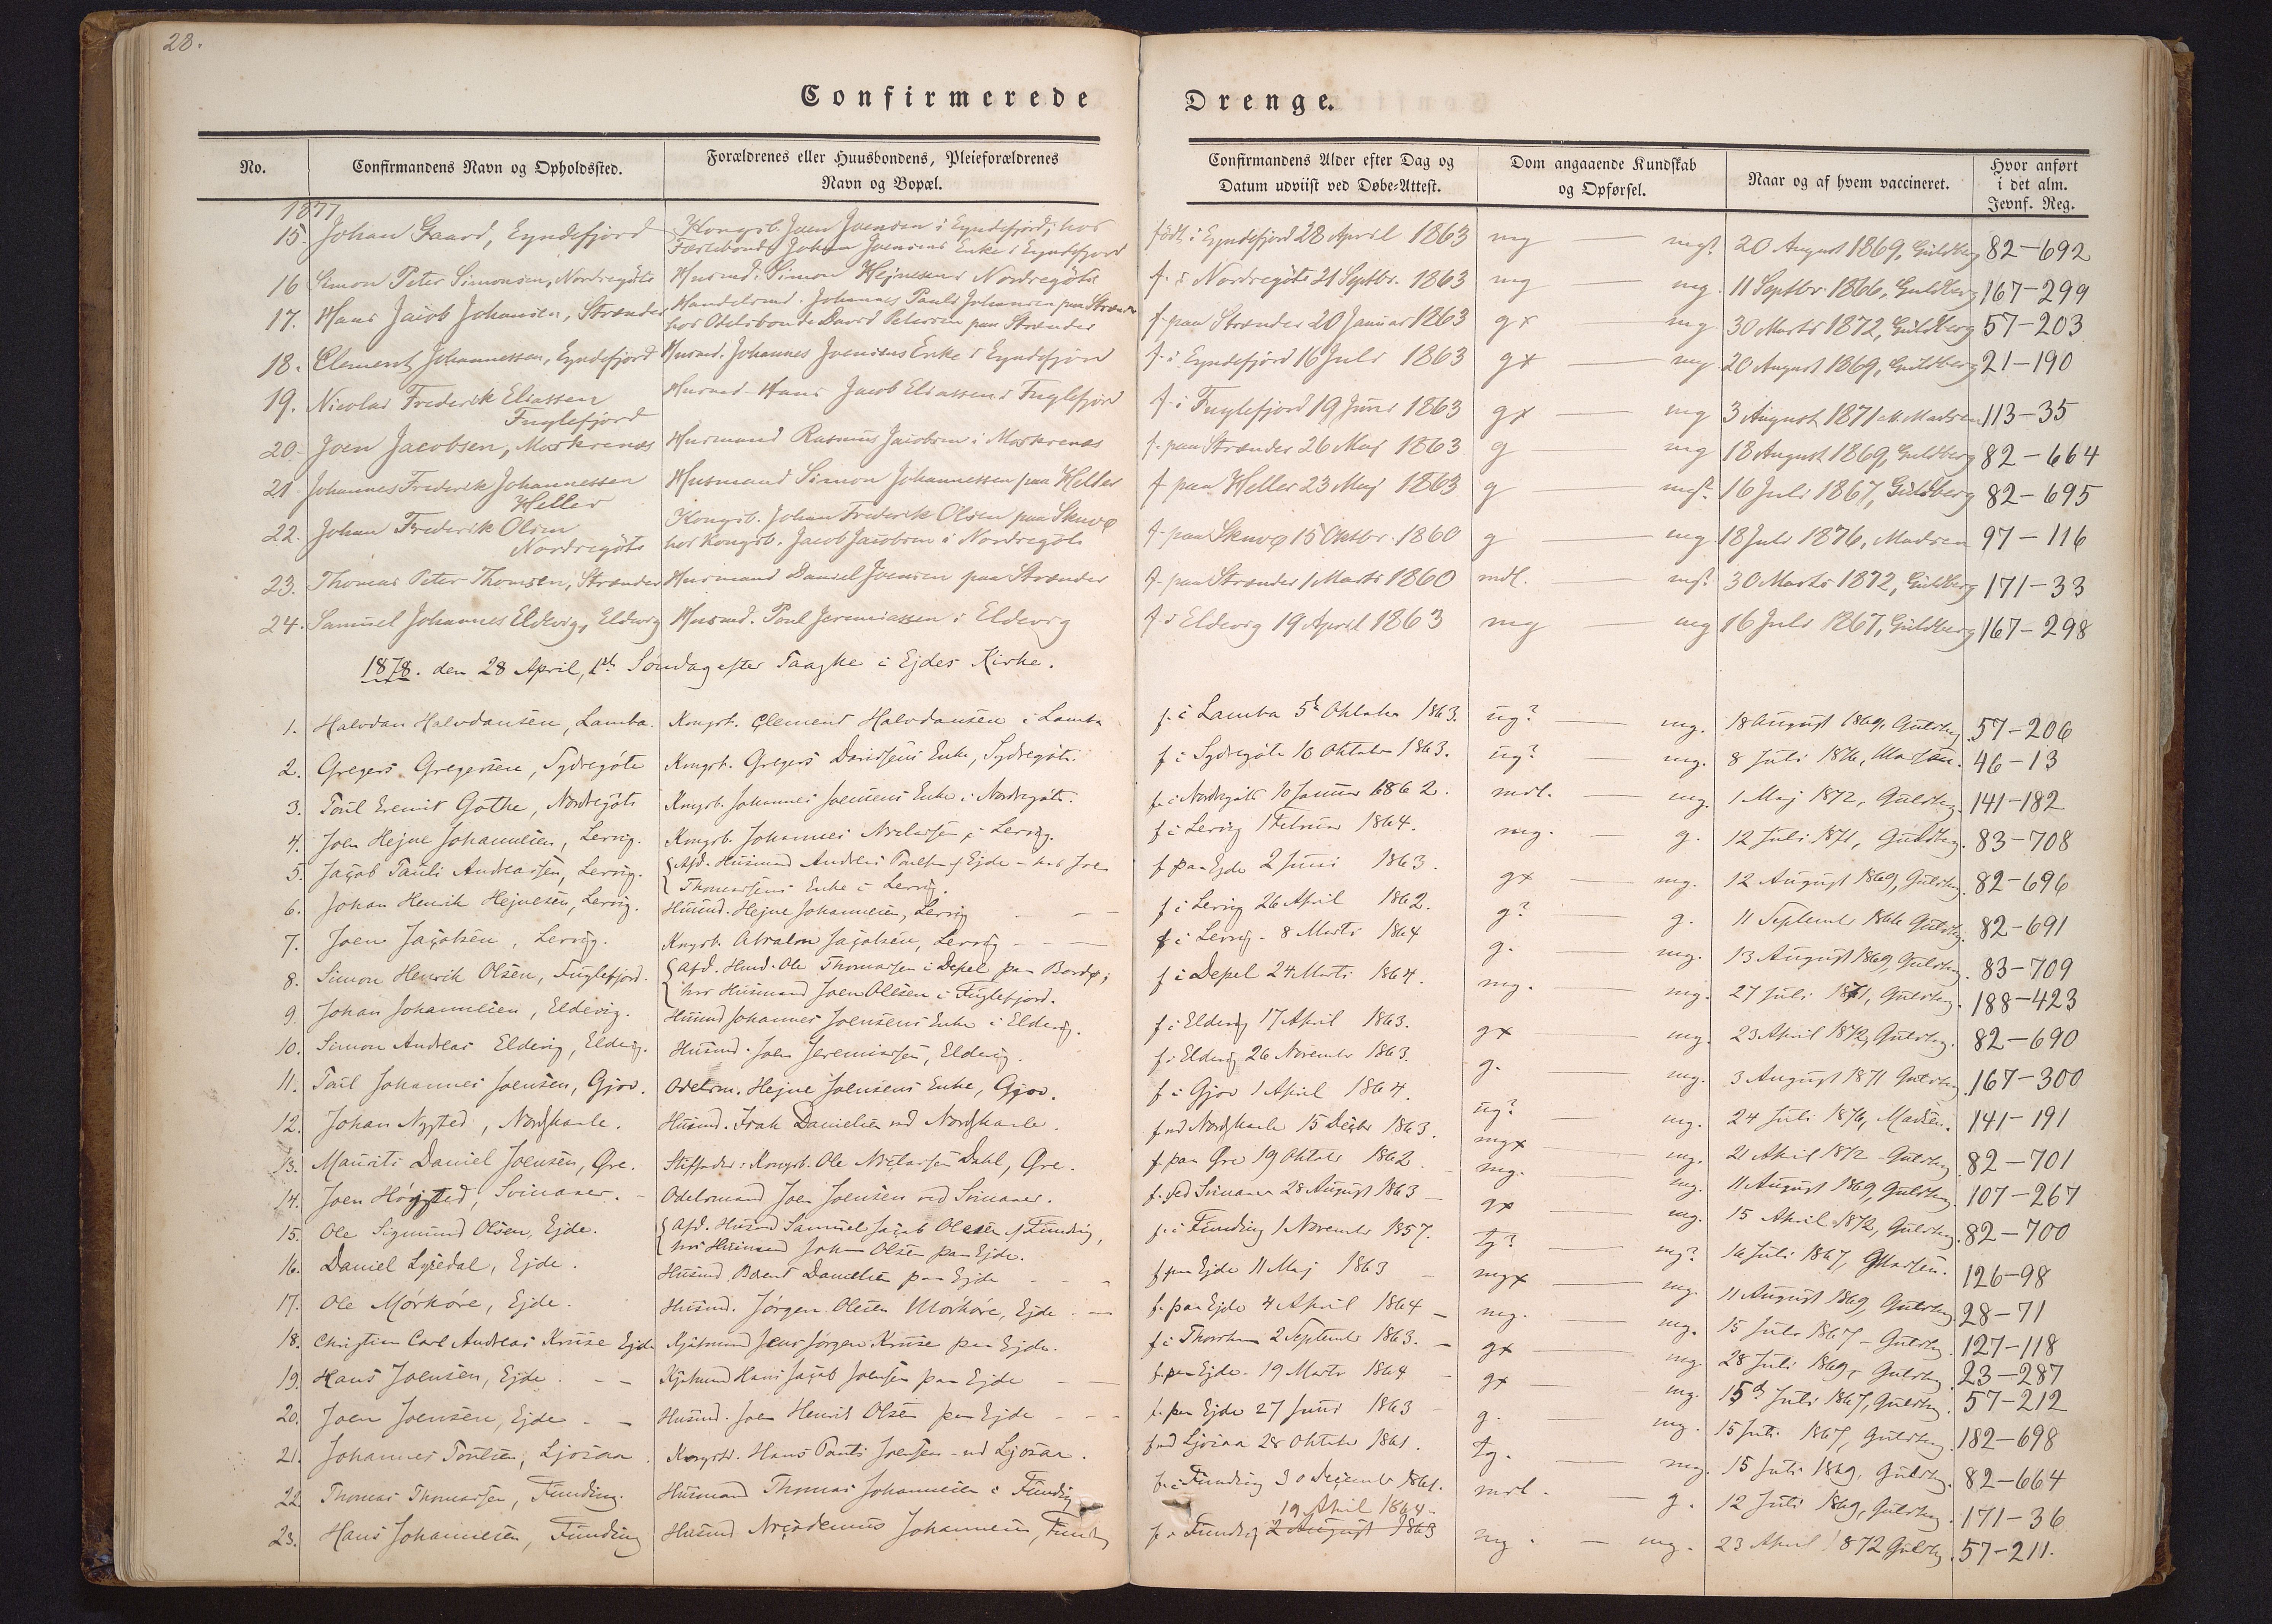 28.
Confirmerede Drenge.
No. Confirmandens Navn og Opholdssted. Forældrenes eller Huusbondens, Pleieforældrenes Navn og Bopæl. Confirmandens Alder efter Dag og Datum udviist ved Døbe-Attest. Dom angaaende Kundskab og Opførsel. Naar og af hvem vaccineret. Hvor anført i det alm. Jevnf. Reg.
1877
15. Johan Gaard, Eyndefjord Kongsb. Joen Joensen i Eyndefjord, hos født i Eyndefjord 28 April 1863 mg — mg? 20 August 1869, Guldberg 82-692
Fæstebonde Johan Joensens Enke i Eyndefjord
16 Simon Peter Simonsen, Nordregöte Husmd. Simon Hejnesen i Nordregöte f. i Nordregöte 21 Septbr. 1863 mg — mg. 11 Septbr. 1866, Guldberg 167-299
17. Hans Jacob Johansen, Strænder Handelsmd. Johannes Pauli Johansen paa Strænder f. paa Strænder 20 Januar 1863 gx — mg 30 Marts 1872, Guldberg 57-203
hos Odelsbonde David Petersen paa Strænder
18. Clement Johannessen, Eyndefjord Husmd. Johannes Joensens Enke i Eyndefjord f. i Eyndefjord 16 Juli 1863 gx — mg 20 August 1869, Guldberg 21-190
19. Nicolai Frederik Eliassen Husmd. Hans Jacob Eliassen i Fuglefjord f. i Fuglefjord 19 Juni 1863 gx — mg 3 August 1871 Madsen 113-35
Fuglefjord
20. Joen Jacobsen, Morkrenæs Husmand Rasmus Jacobsen i Morkrenæs f. paa Strænder 26 Maj 1863 g — mg 18 August 1869, Guldberg 82-664
21. Johannes Frederik Johannessen Husmand Simon Johannessen paa Heller f. paa Heller 23 Maj 1863 g — mg? 16 Juli 1867, Guldberg 82-695
Heller
22. Johan Frederik Olsen Kongsb. Johan Frederik Olsen paa Skuvø f. paa Skuvø 15 Oktbr. 1860 g — mg 18 Juli 1876, Madsen 97-116
Nordregöte hos Kongsb. Jacob Jacobsen i Nordregöte
23. Thomas Peter Thomsen, Strænder Husmand Daniel Joensen paa Strænder f. paa Strænder 1 Marts 1860 mdl. — mg? 30 Marts 1872, Guldberg 171-33
24. Samuel Johannes Eldevig, Eldevig Husmd. Poul Jeremiassen i Eldevig f. i Eldevig 19 April 1863 mg — mg 16 Juli 1867, Guldberg 167-298
1878. den 28 April, 1ste Søndag efter Paaske i Ejdes Kirke.
1. Halvdan Halvdansen, Lamba. Kongsb. Clement Halvdansen i Lamba f. i Lamba 5te Oktober 1863. ug? — mg. 18 August 1869, Guldberg. 57-206
2. Gregers Gregersen, Sydregöte Kongsb. Gregers Davidsens Enke, Sydregöte. f. i Sydregöte 10 Oktober 1863. ug? — mg. 8 Juli 1876, Madsen. 46-13
3. Poul Gothe, Nordregöte Kongsb. Johannes Joensens Enke i Nordregöte. f. i Nordregöte 10 Januar 1862. mdl. — mg. 1 Maj 1872, Guldberg. 141-182
4. Joen Hejne Johannesen, Lervig. Kongsb. Johannes Niclassen i Lervig. f. i Lervig 1 Februar 1864. mg. — g. 12 Juli 1871, Guldberg. 83-708
5. Jacob Pauli Andreassen, Lervig. Afd. Husmand Andreas Poulsen af Ejde - hos Joen f. paa Ejde 2 Juni 1863. gx — mg. 12 August 1869, Guldberg. 82-696
Thomassens Enke i Lervig.
6. Johan Henrik Hejnesen, Lervig. Husmd. Hejne Johannesen, Lervig f. i Lervig 26 April 1862. g? — g. 11 September 1866 Guldberg. 82-691
7. Joen Jacobsen, Lervig. Kongsb. Absalon Jacobsen, Lervig f. i Lervig. 8 Marts 1864 g. — mg. 13 August 1869, Guldberg. 83-709
8. Simon Henrik Olsen, Fuglefjord. Afd. Husmd. Ole Thomassen i Depel paa Bordø; f. i Depel 24 Marts 1864. mg. — mg. 27 Juli 1871, Guldberg. 188-423
hos Husmand Joen Olesen i Fuglefjord.
9. Johan Johannesen, Eldevig. Husmd Johannes Joensens Enke i Eldevig. f. i Eldevig 17 April 1863. gx — mg. 23 April 1872, Guldberg. 82-690
10. Simon Andreas Eldevig, Eldevig. Husmd. Joen Jeremiassen, Eldevig. f. i Eldevig 26 November 1863. g. — mg. 3 August 1871 Guldberg. 167-300
11. Poul Johannes Joensen, Gjov. Odelsm. Hejne Joensens Enke, Gjov. f. i Gjov 1 April 1864. ug? — mg. 24 Juli 1876, Madsen. 141-191
12. Johan Nysted, Nordskaale. Husmd. Isak Danielsen ved Nordskaale. f. ved Nordskaale 15 Decbr 1863. mgx — mg. 21 April 1872 - Guldberg 82-701
13. Maurits Daniel Joensen, Øre. Stiffader: Kongsb. Ole Niclassen Dahl, Øre. f. paa Øre 19 Oktober 1862. mg. — mg. 11 August 1869, Guldberg. 107-267
14. Joen Höjsted, Svinaaer. Odelsmand Joen Joensen ved Svinaaer. f. ved Svinaaer 28 August 1863 gx — mg. 15 April 1872, Guldberg. 82-700
15. Ole Sigmund Olsen, Ejde. Afd. Husmd Samuel Jacob Olesen af Funding, f. i Funding 1 November 1857. tg? — mg? 16 Juli 1867, Madsen. 126-98
hos Husmand Johan Olsen paa Ejde.
16. Daniel Lysedal, Ejde. Husmd Berent Danielsen paa Ejde f. paa Ejde 11 Maj 1863 mgx — mg. 11 August 1869, Guldberg 28-71
17. Ole Mörköre, Ejde. Husmd. Jørgen Olesen Mörköre, Ejde f. paa Ejde 4 April 1864 mg. — mg. 15 Juli 1867 - Guldberg. 127-118
18. Christian Carl Andreas Kruse Ejde Kjøbmand Jens Jørgen Kruse paa Ejde. f. i Thorshavn 2 September 1863. gx — mg. 28 Juli 1869, Guldberg. 23-287
19. Hans Joensen, Ejde. Kjøbmand Hans Jacob Joensen paa Ejde f. paa Ejde 19 Marts 1864 gx — mg. 15de Juli 1867, Guldberg. 57-212
20. Joen Joensen, Ejde Husmd. Joen Henrik Olsen paa Ejde f. paa Ejde 27 Juni 1863 g. — mg. 15 Juli 1867, Guldberg. 182-698
21. Johannes Poulsen, Ljosaa. Kongsb. Hans Pauli Joensen ved Ljosaa. f. ved Ljosaa 28 Oktober 1861. tg. — mg. 15 Juli 1869, Guldberg. 82-664
22. Thomas Thomassen, Funding. Husmand Thomas Johannesen i Funding f. i Funding 30 December 1861. mdl. — g. 12 Juli 1869, Guldberg. 171-36
19 April 1864
23. Hans Johannesen, Funding Husmd Nicodemus Johannesen, Funding f. i Funding 2 August 1863 mg. — mg. 23 April 1872 Guldberg. 57-211.